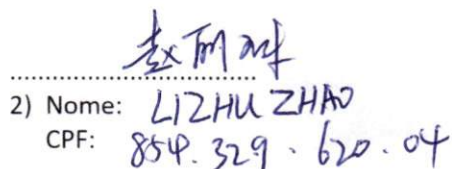 赵丽珠
2) Nome: LIZHU ZHAO
CPF: 854.329.620.04